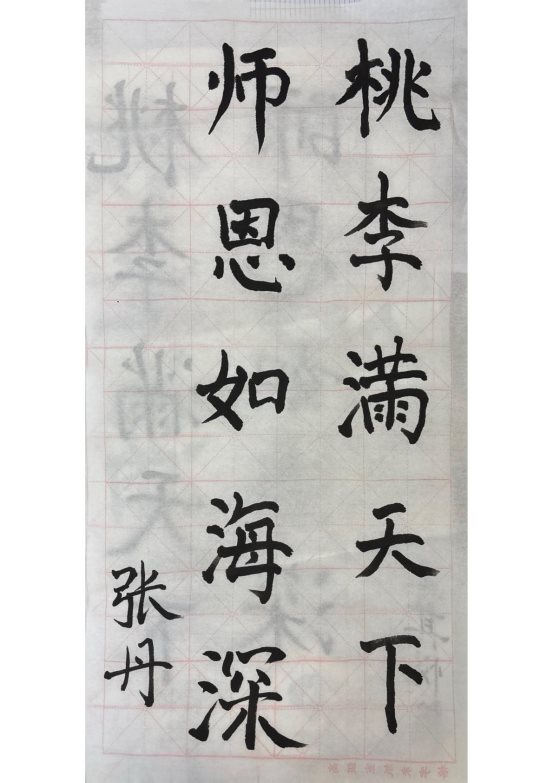 桃李满天下
师恩如海深
张丹